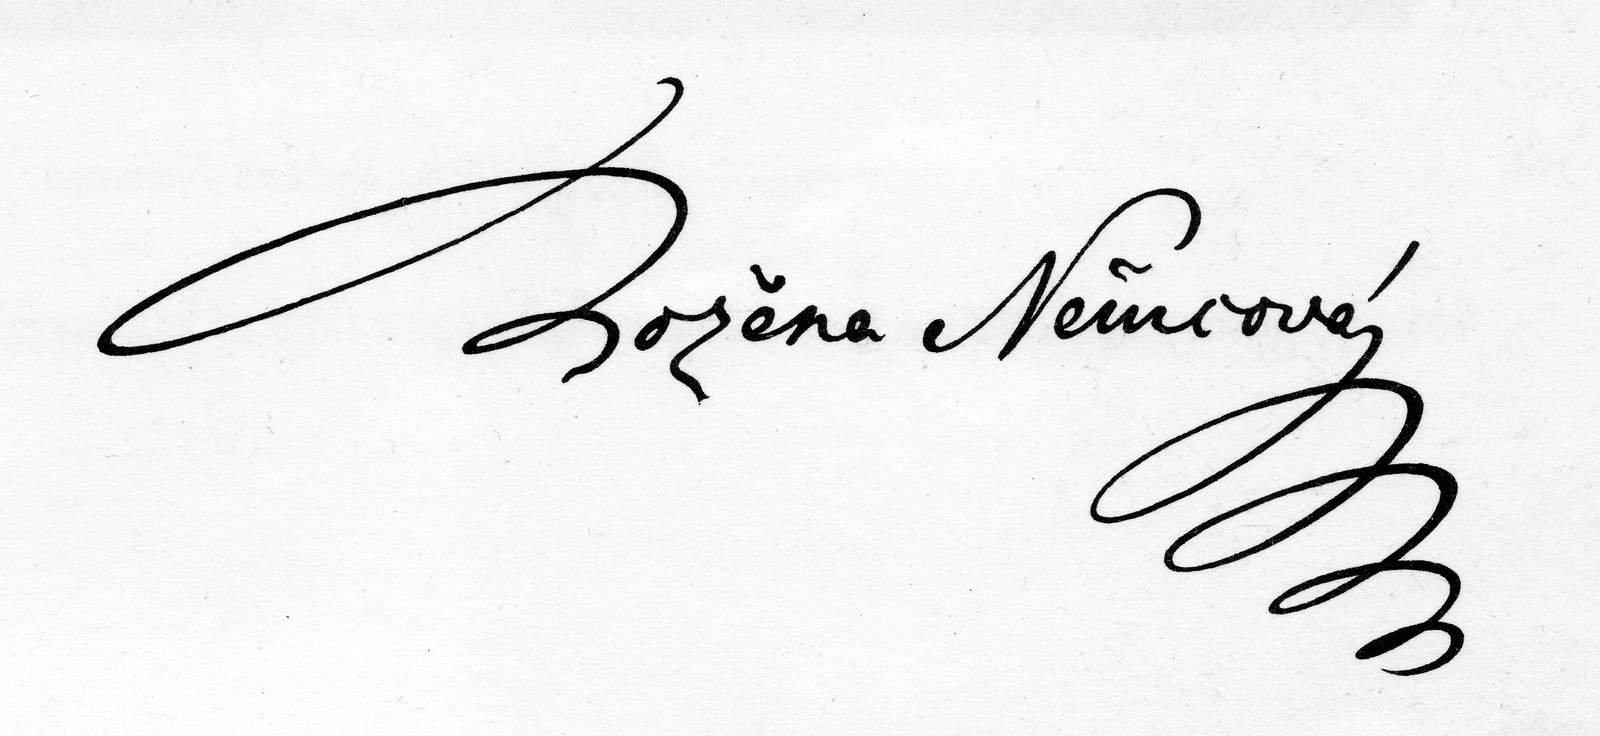 Božena Němcová